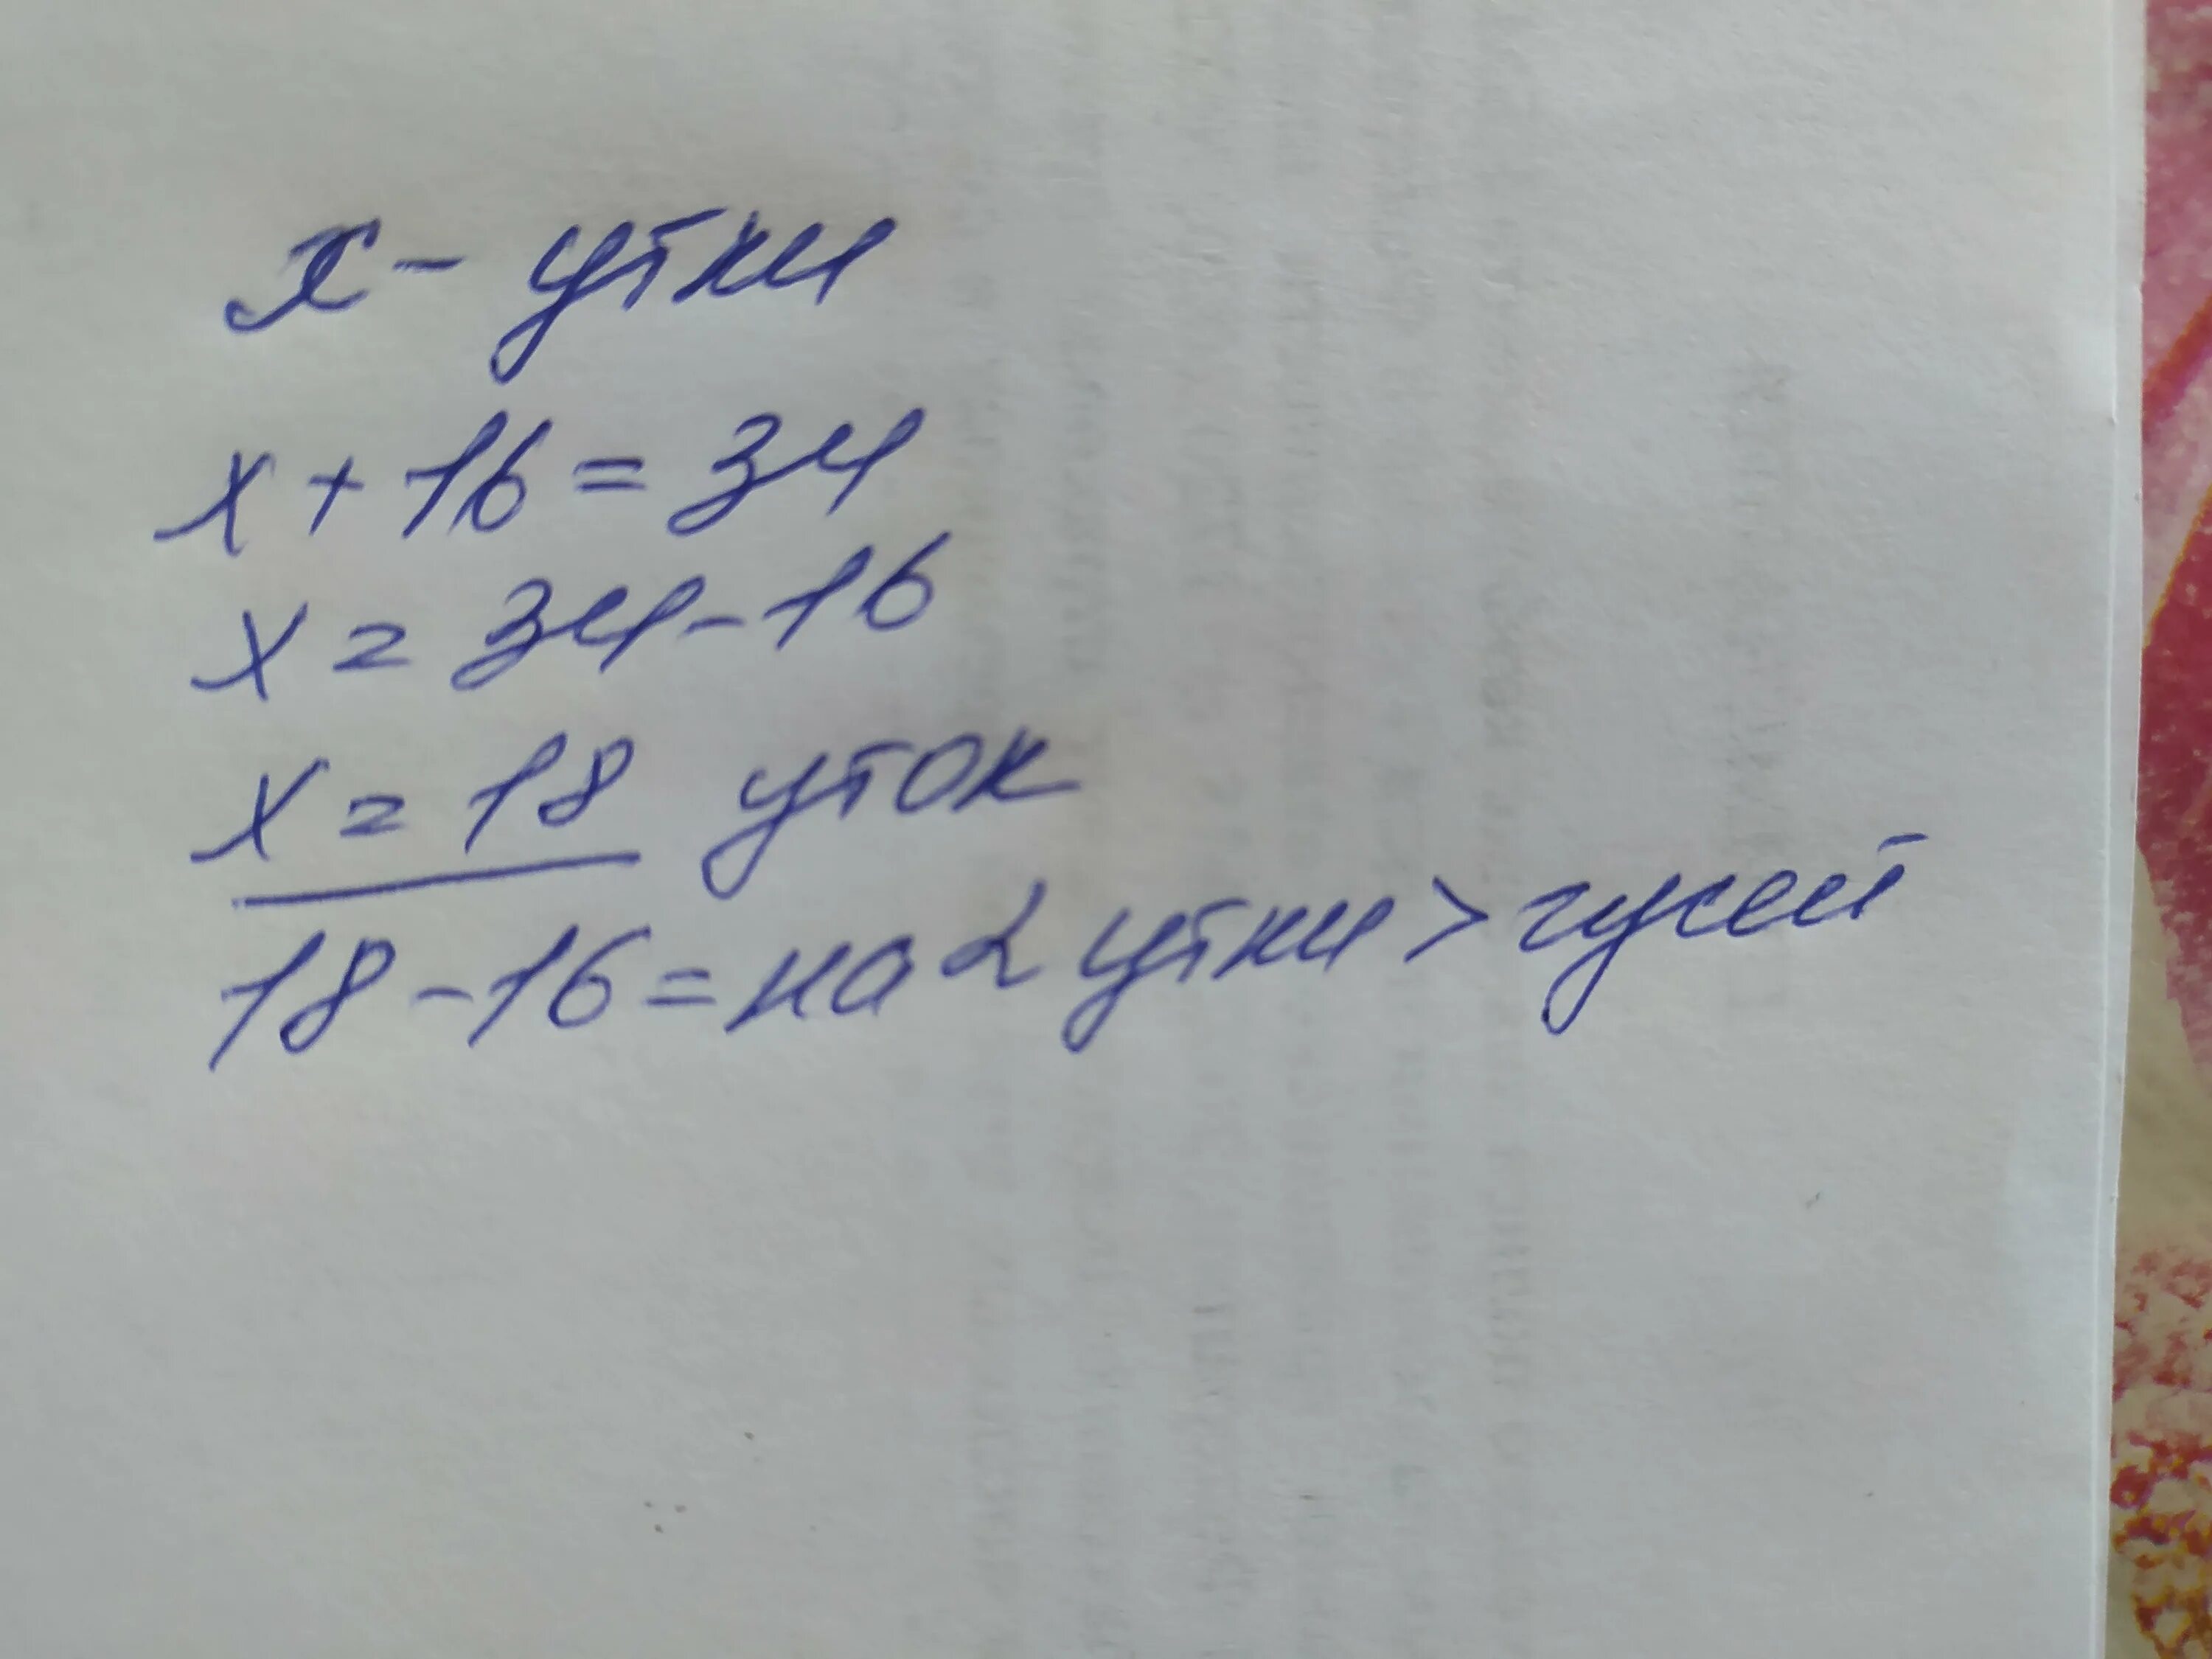 х - утки
х + 16 = 34
х = 34 - 16
х = 18 уток
18 - 16 = на 2 утки > гусей